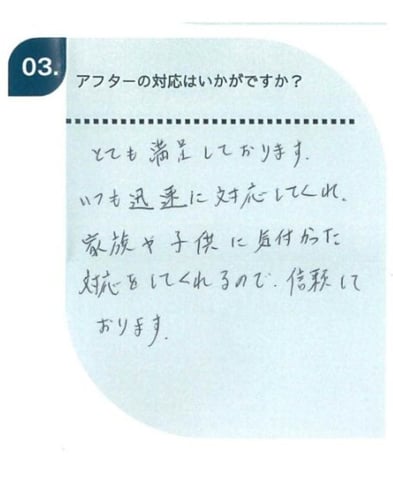 03.
アフターの対応はいかがですか？
とても満足しております.
いつも迅速に対応してくれ.
家族や子供に気付かった
対応をしてくれるので.信頼して
おります.